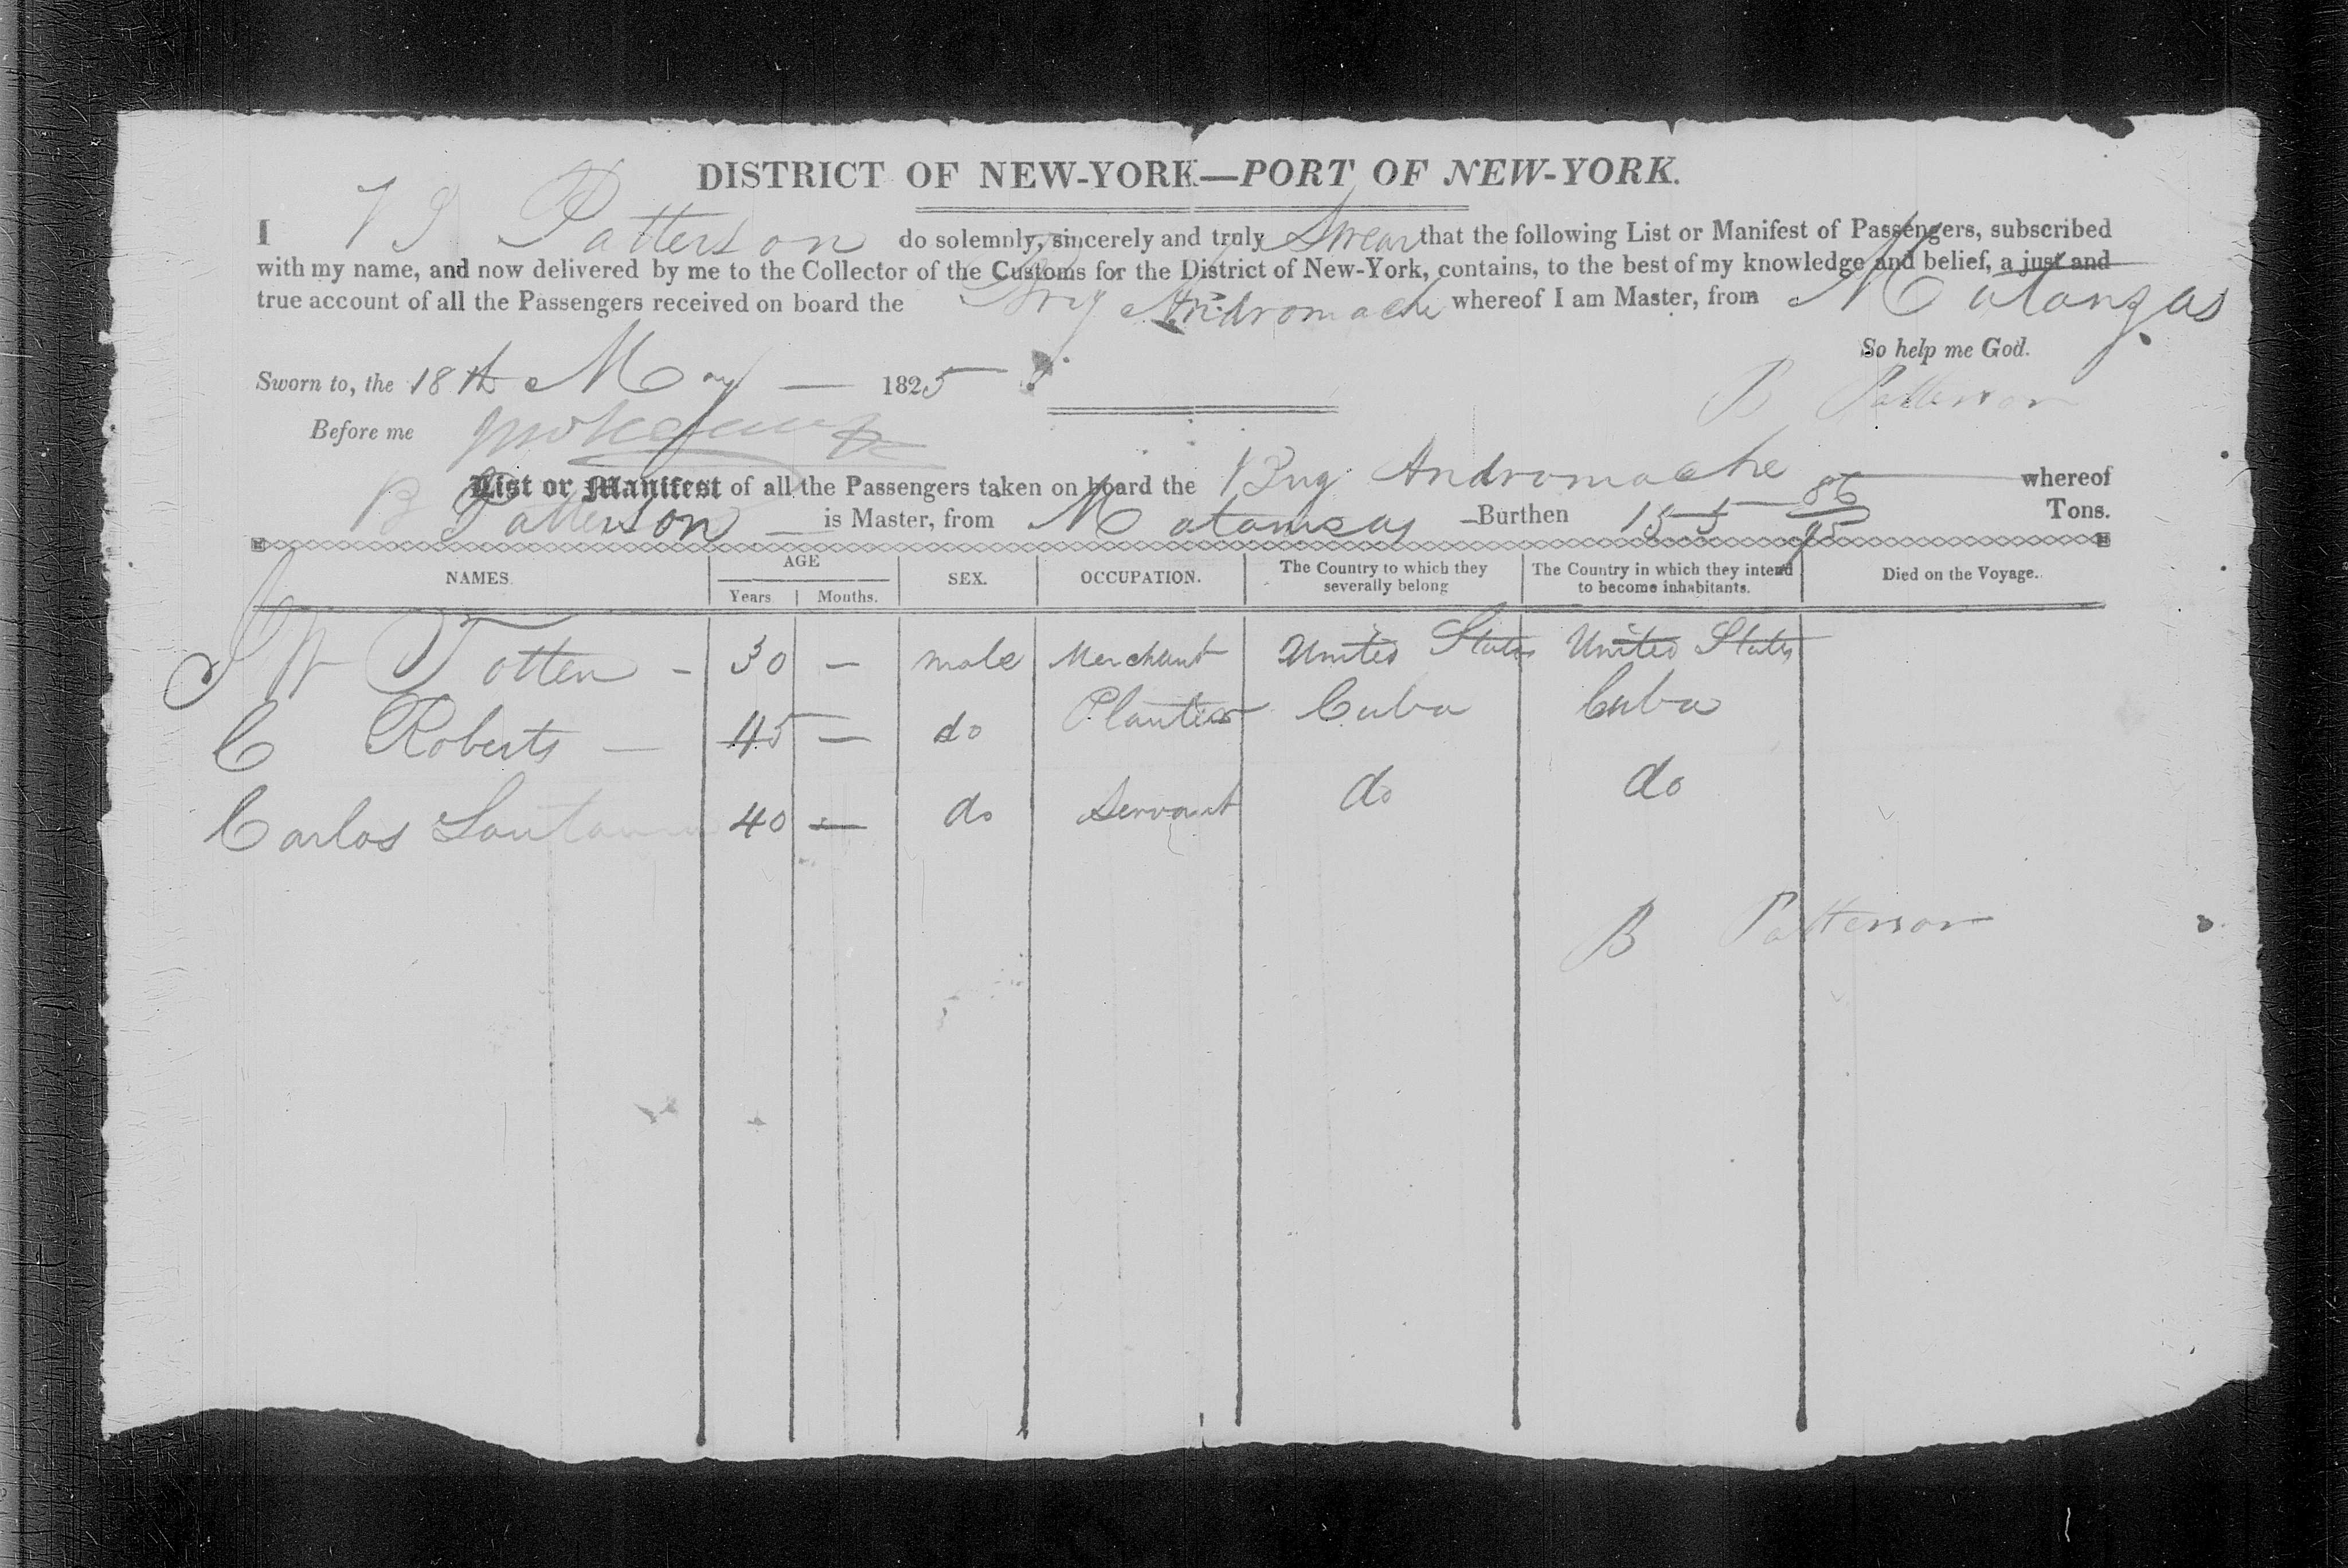 DISTRICT OF NEW-YORK.—PORT OF NEW-YORK.
I B Patterson do solemnly, sincerely and truly Swear that the following List or Manifest of Passengers, subscribed
with my name, and now delivered by me to the Collector of the Customs for the District of New-York, contains, to the best of my knowledge and belief, a just and
true account of all the Passengers received on board the Brig Andromache whereof I am Master, from Matanzas
So help me God.
Sworn to, the 18th May — 1825
B Patterson
Before me
List or Manifest of all the Passengers taken on board the Brig Andromache whereof
B Patterson — is Master, from Matanzas Burthen 155 86/95 Tons.
NAMES. AGE SEX. OCCUPATION. The Country to which they severally belong The Country in which they intend to become inhabitants. Died on the Voyage.
Years Months.
J W Totten - 30 - male Merchant United States United States
C Roberts - 45 - do Planter Cuba Cuba
Carlos 40 - do Servant do do
B Patterson